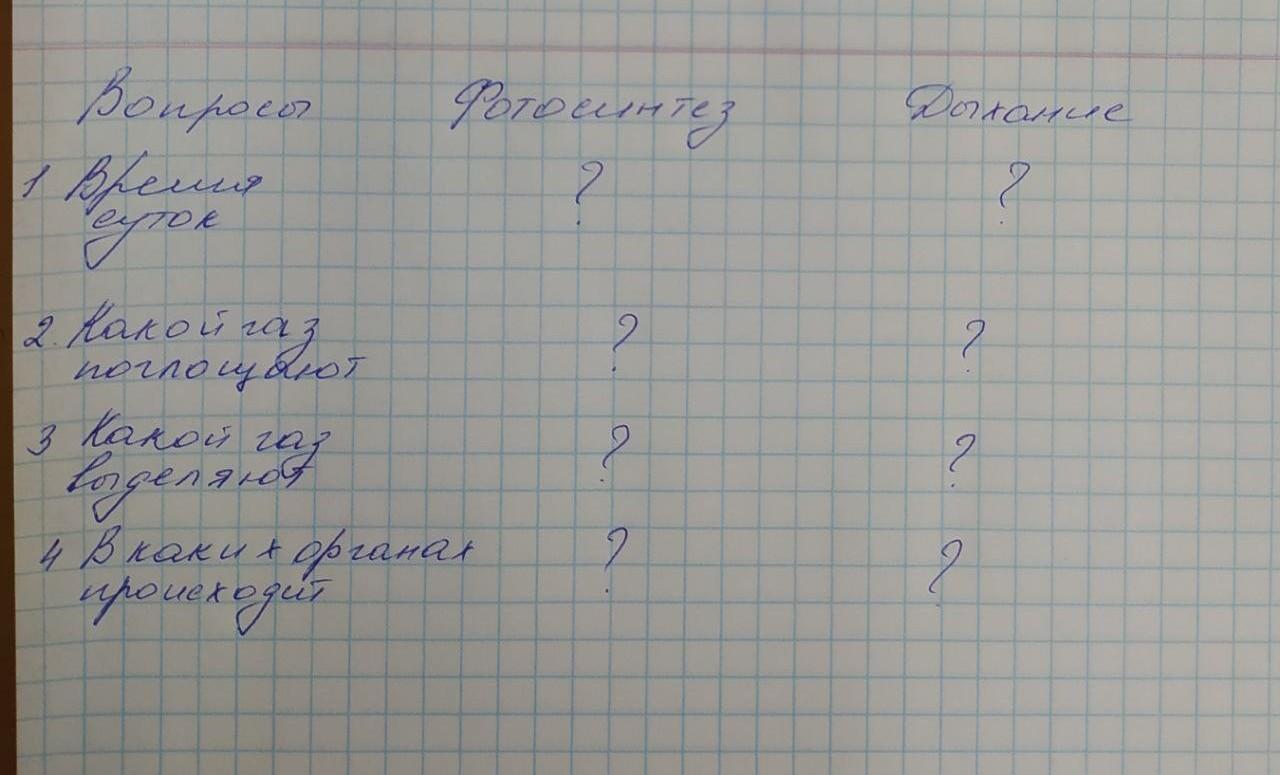 Вопросы Фотосинтез Дыхание
1 Время ? ?
суток
2. Какой газ ? ?
поглощают
3 Какой газ ? ?
выделяют
4 В каких органах ? ?
происходит